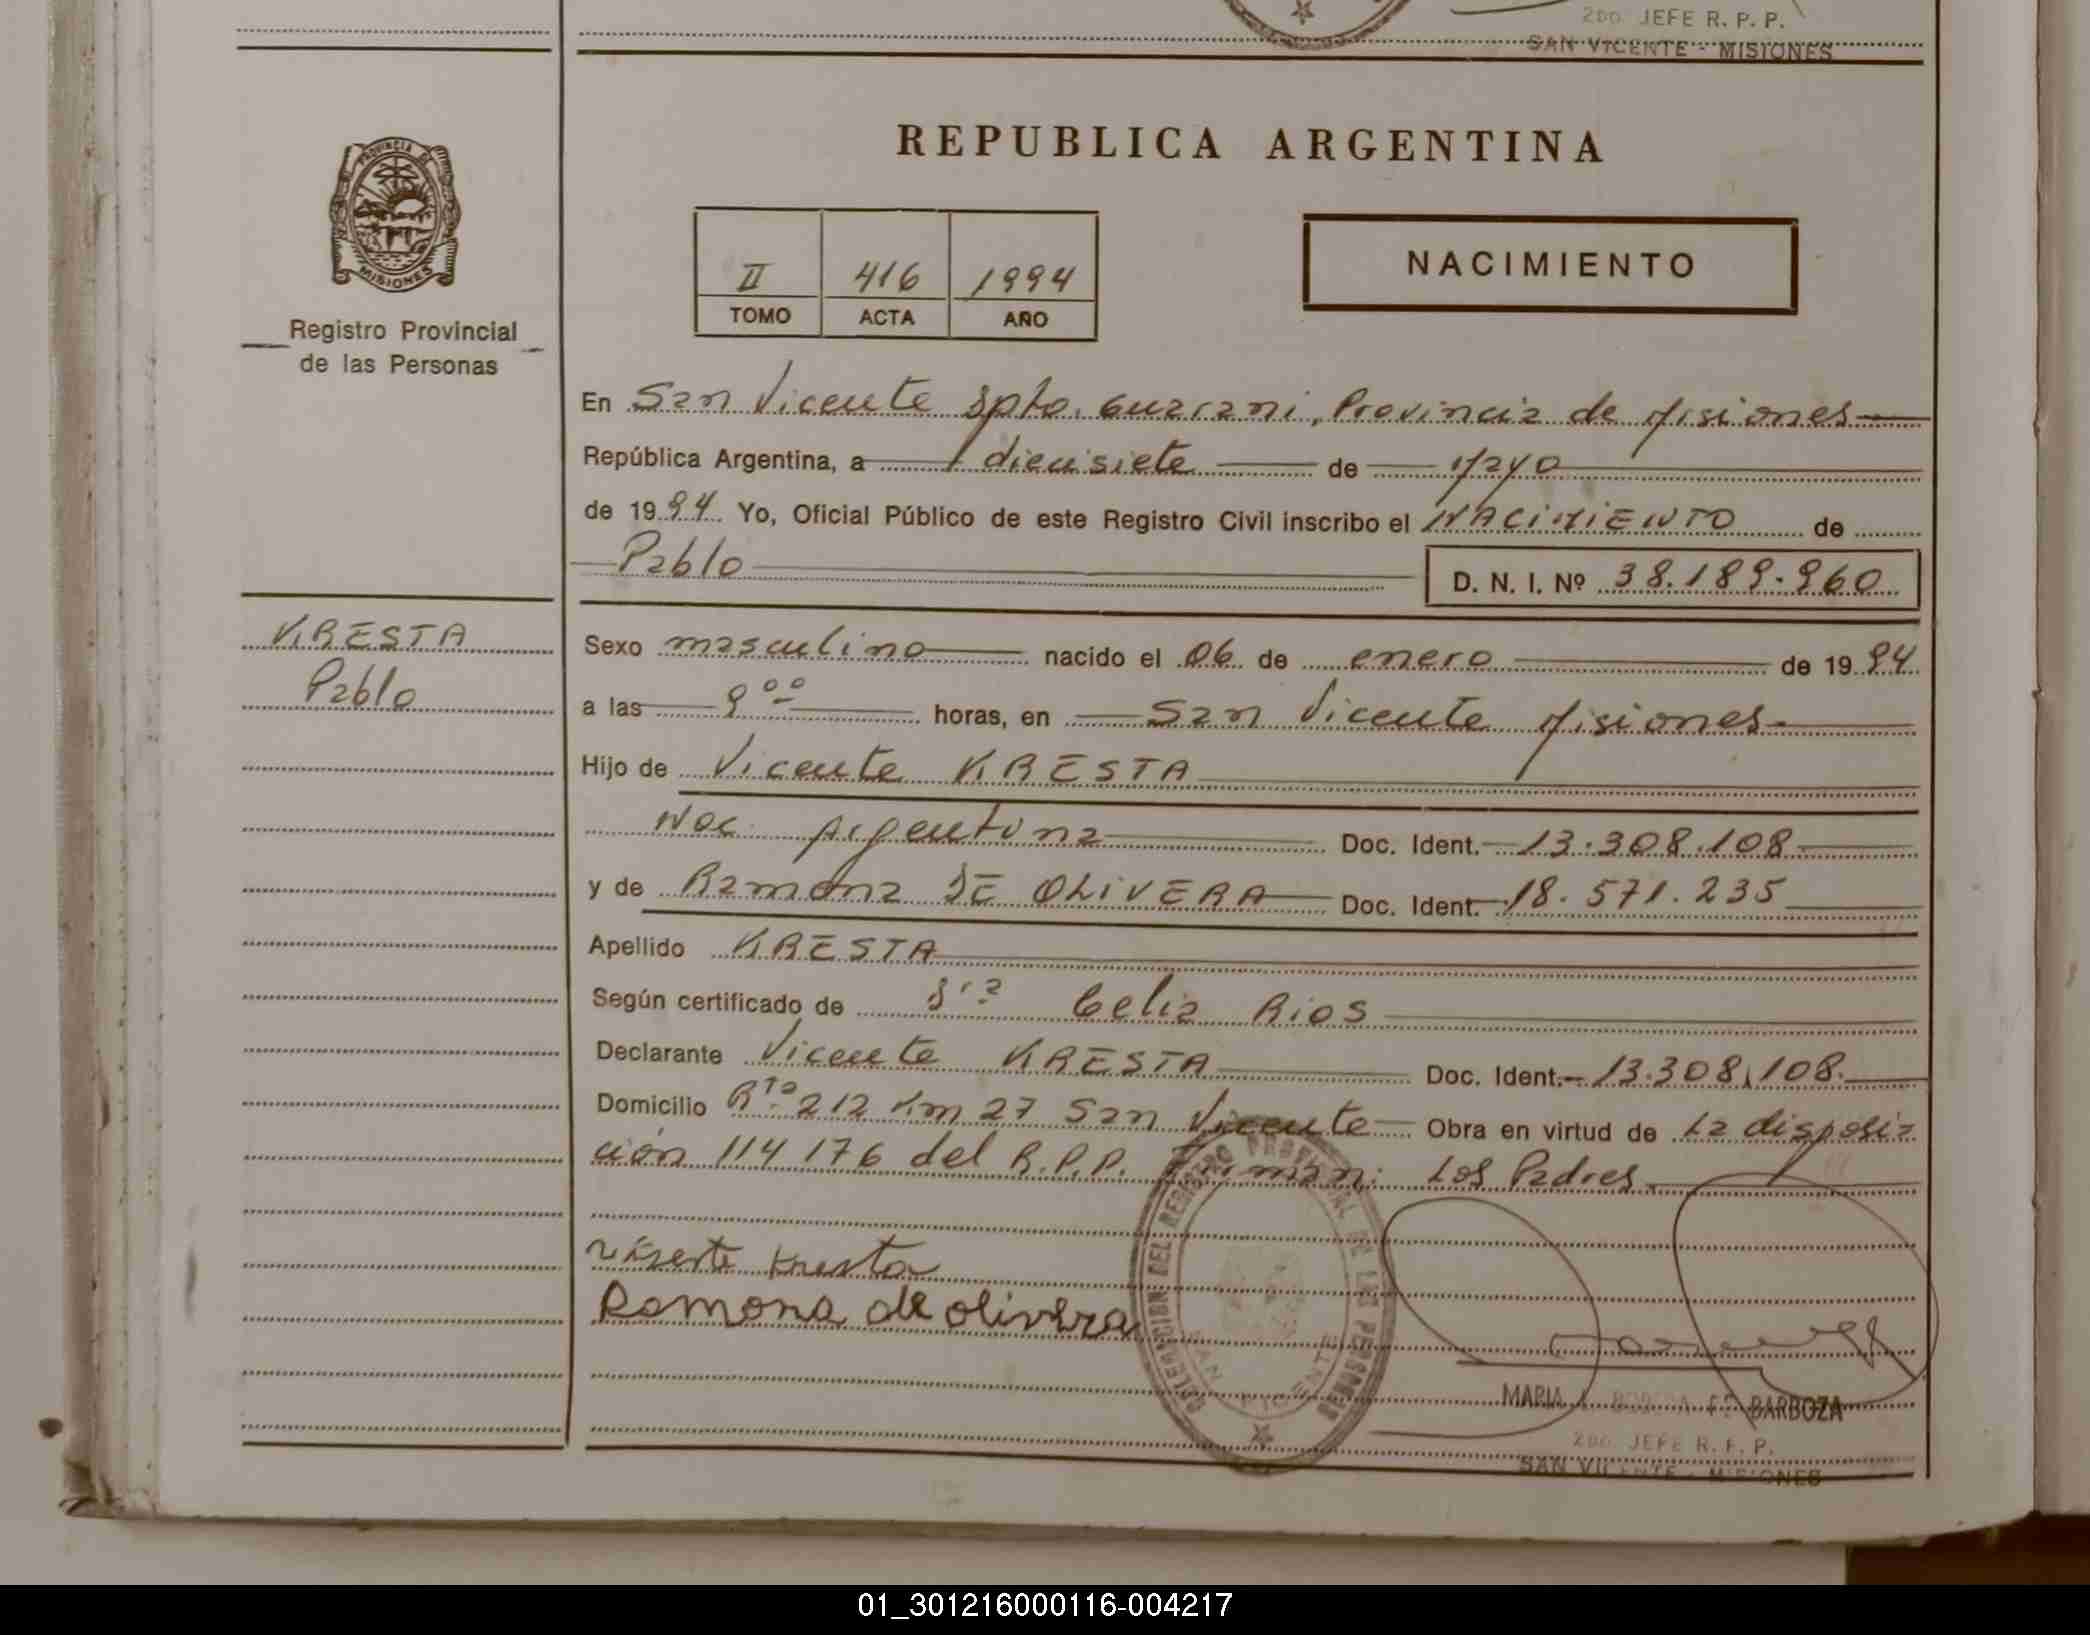 2do. JEFE R. P. P.
SAN VICENTE - MISIONES
PROVINCIA DE
MISIONES
Registro Provincial
de las Personas
REPUBLICA ARGENTINA
II 416 1994
TOMO ACTA AÑO
NACIMIENTO
En San Vicente Dpto. Guarani, Provincia de Misiones
República Argentina, a diecisiete de Mayo
de 1994 Yo, Oficial Público de este Registro Civil inscribo el NACIMIENTO de
Pablo D. N. I. Nº 38.189.960
KRESTA
Pablo
Sexo masculino nacido el 06 de enero de 1994
a las 9 00 horas, en San Vicente Misiones
Hijo de Vicente KRESTA
Nac. Argentina Doc. Ident. 13.308.108
y de Ramona DE OLIVERA Doc. Ident. 18.571.235
Apellido KRESTA
Según certificado de Dra Celia Rios
Declarante Vicente KRESTA Doc. Ident. 13.308.108.
Domicilio Rta 212 Km 27 San Vicente Obra en virtud de La disposi
ción 114 176 del R.P.P. Firman: Los Padres
Viserte Kresta
Ramona de olivera
DELEGACION DEL REGISTRO PROVINCIAL DE LAS PERSONAS
SAN VICENTE
MARIA BARBOZA
2do. JEFE R. P. P.
SAN VICENTE - MISIONES
01_301216000116-004217